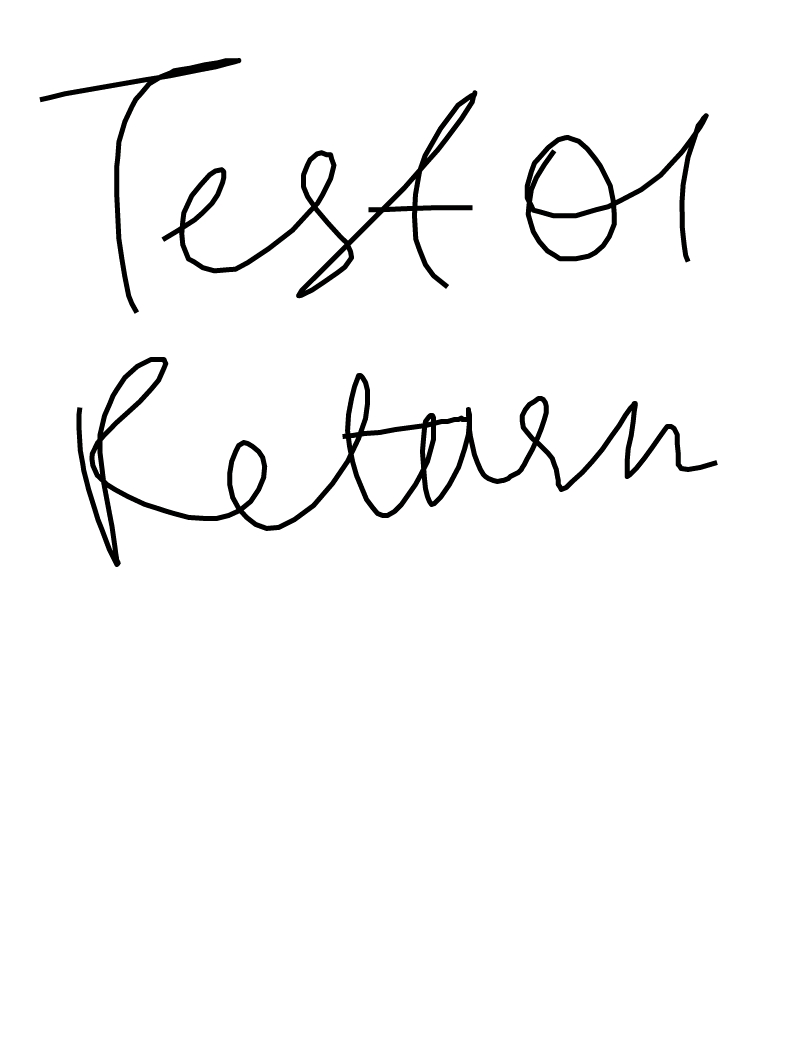 Test 01
Return